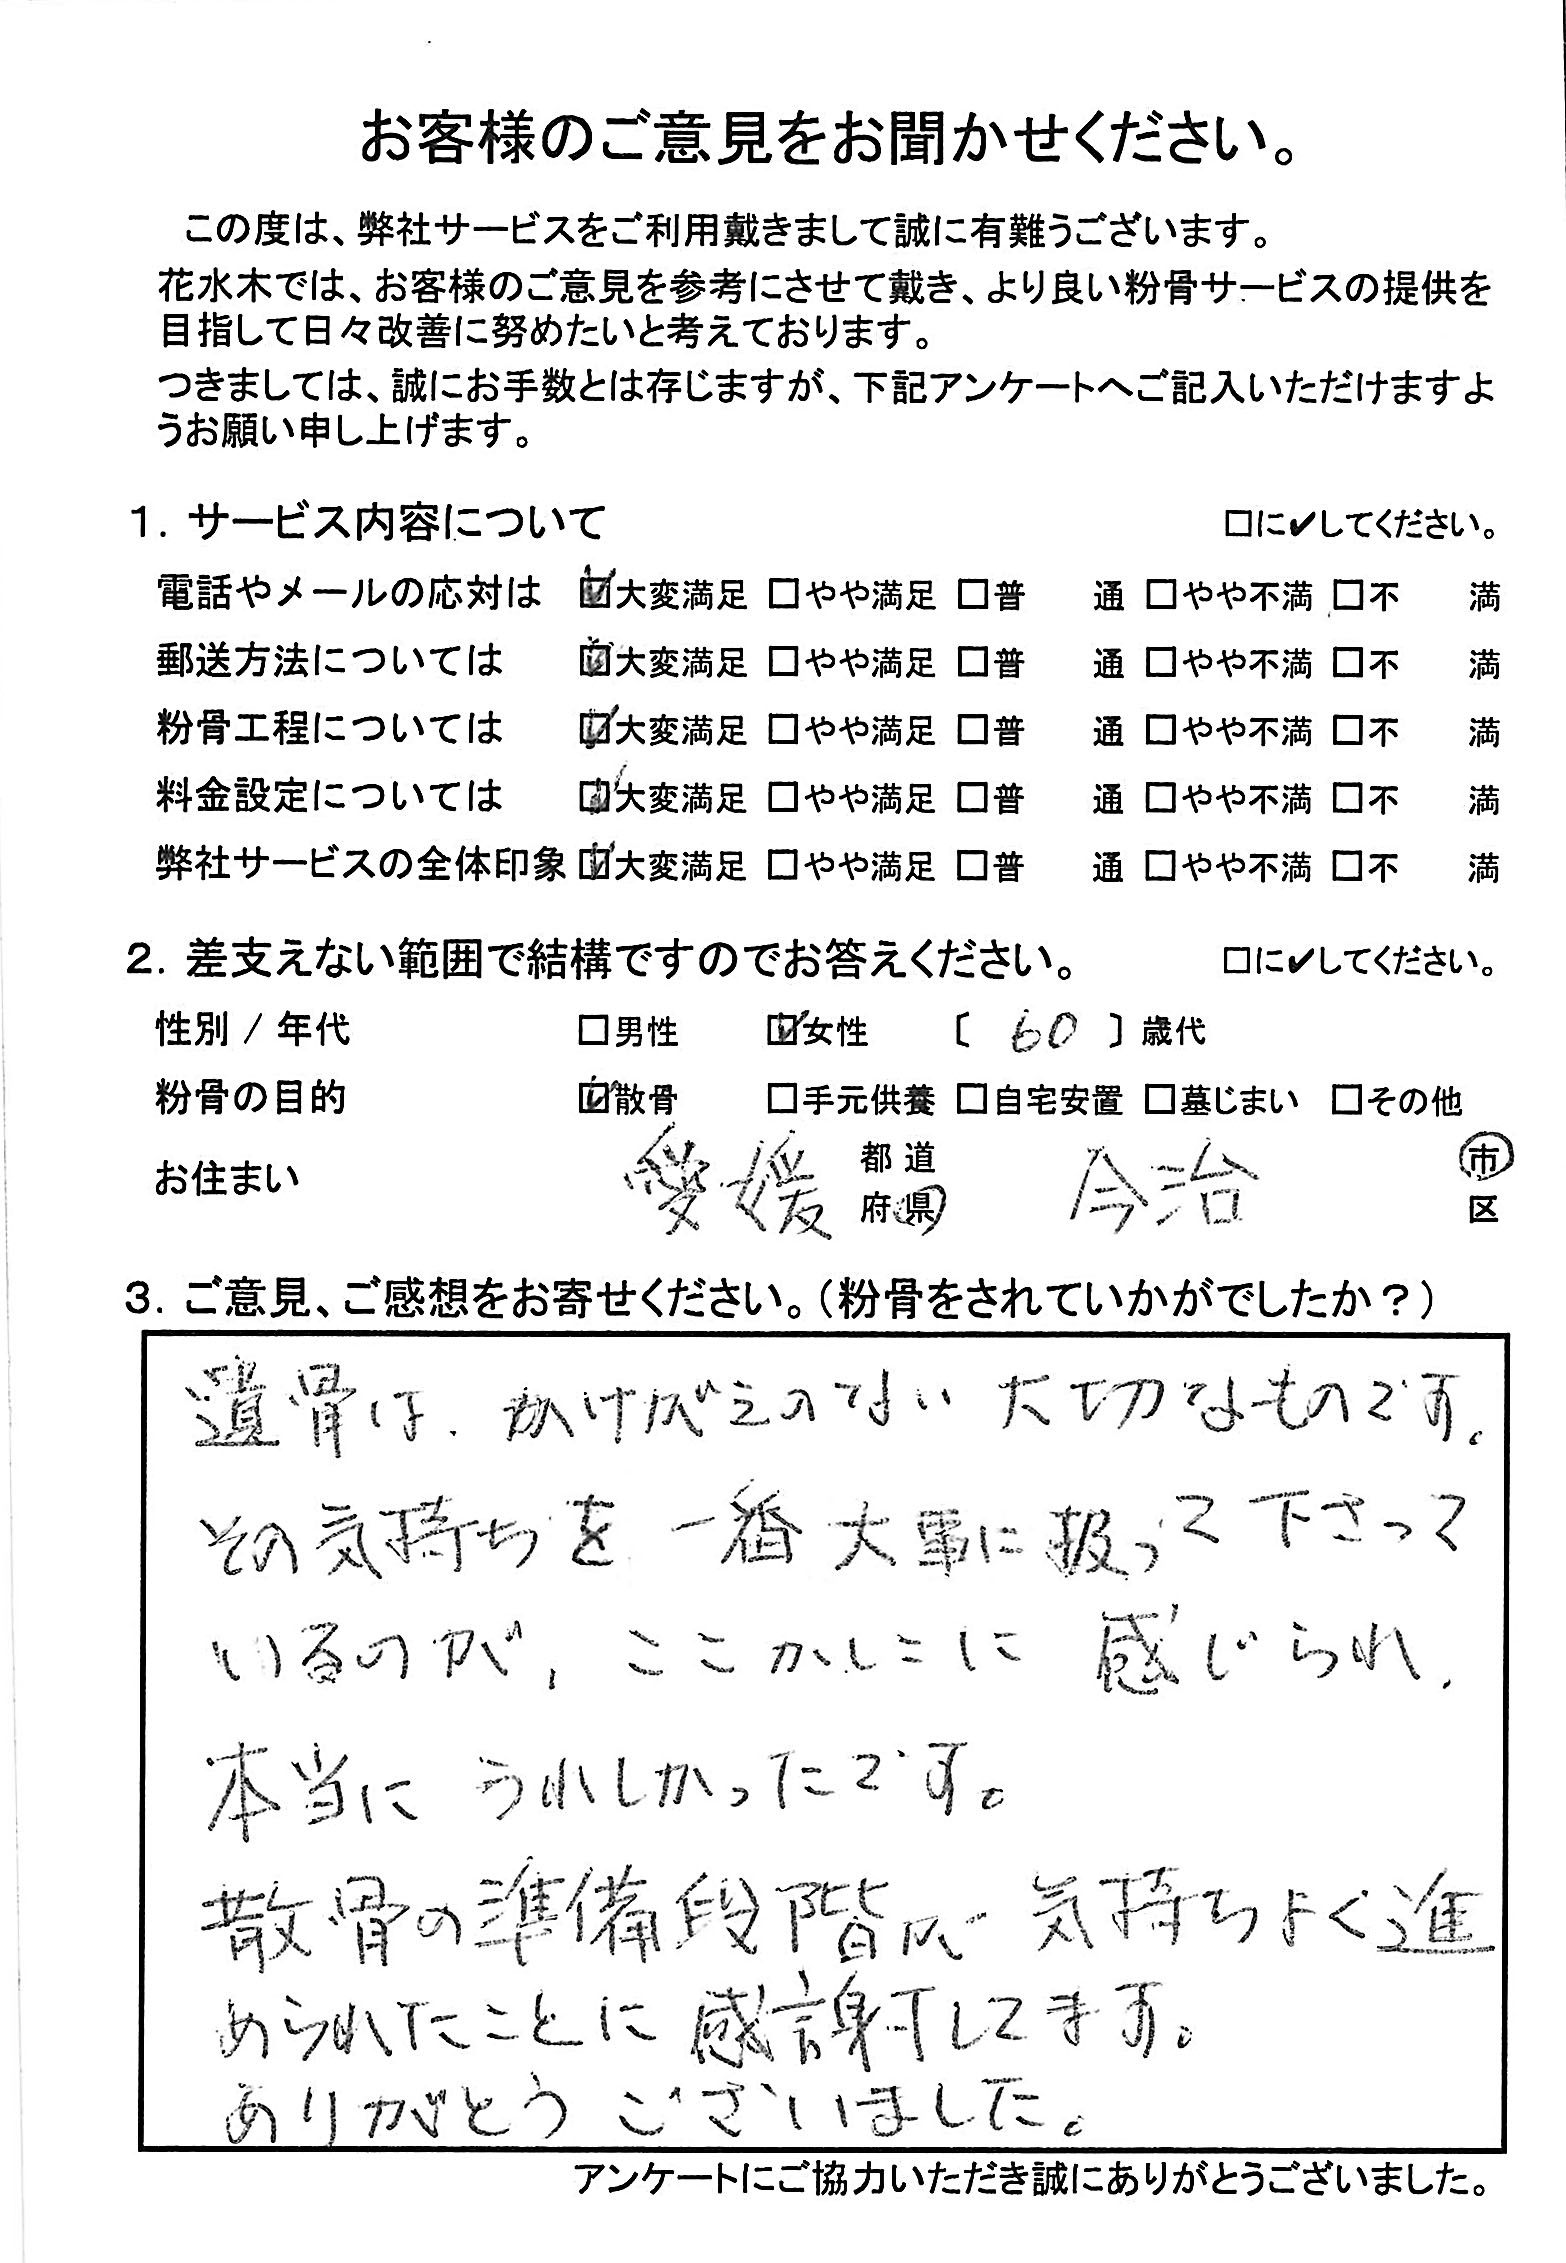 お客様のご意見をお聞かせください。
この度は、弊社サービスをご利用戴きまして誠に有難うございます。
花水木では、お客様のご意見を参考にさせて戴き、より良い粉骨サービスの提供を
目指して日々改善に努めたいと考えております。
つきましては、誠にお手数とは存じますが、下記アンケートへご記入いただけますよ
うお願い申し上げます。
1. サービス内容について □に✔してください。
電話やメールの応対は ☑大変満足 □やや満足 □普 通 □やや不満 □不 満
郵送方法については ☑大変満足 □やや満足 □普 通 □やや不満 □不 満
粉骨工程については ☑大変満足 □やや満足 □普 通 □やや不満 □不 満
料金設定については ☑大変満足 □やや満足 □普 通 □やや不満 □不 満
弊社サービスの全体印象 ☑大変満足 □やや満足 □普 通 □やや不満 □不 満
2. 差支えない範囲で結構ですのでお答えください。 □に✔してください。
性別 / 年代 □男性 ☑女性 〔 60 〕歳代
粉骨の目的 ☑散骨 □手元供養 □自宅安置 □墓じまい □その他
お住まい 愛媛 都道府県 今治 市区
3. ご意見、ご感想をお寄せください。（粉骨をされていかがでしたか？）
遺骨は、かけがえのない大切なものです。
その気持ちを一番大事に扱って下さって
いるのが、ここかしこに感じられ、
本当にうれしかったです。
散骨の準備段階が気持ちよく進
められたことに感謝してます。
ありがとうございました。
アンケートにご協力いただき誠にありがとうございました。